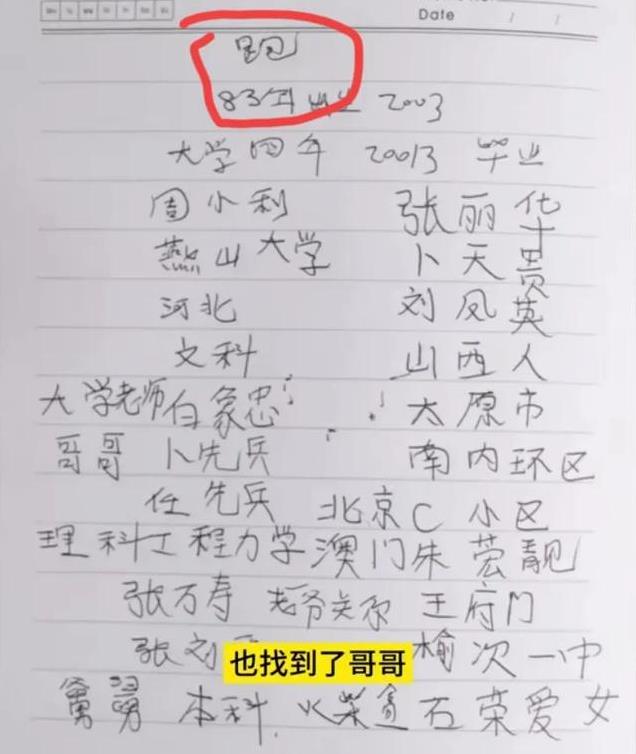 Date / /
跑
83年出生 2003
大学四年 20013 毕业
周小利 张丽华
燕山大学 卜天贵
河北 刘凤英
文科 山西人
大学老师白象忠 太原市
哥哥 卜先兵 南内环区
任先兵 北京C小区
理科工程力学 澳门朱 靓
张万寿 老爷关系 王府门
张刘 榆次一中
舅舅 本科 火柴盒 石荣爱 女
也找到了哥哥